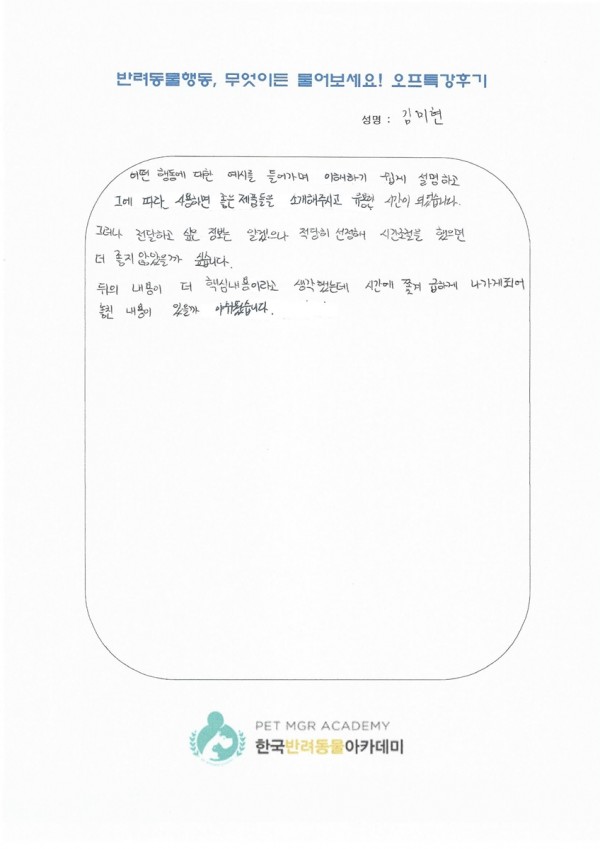 반려동물행동, 무엇이든 물어보세요! 오프특강후기
성명 : 김미현
어떤 행동에 대한 예시를 들어가며 이해하기 쉽게 설명하고
그에 따라 사용하면 좋은 제품들을 소개해주시고 유용한 시간이 되었습니다.
그러나 전달하고 싶은 정보는 알겠으나 적당히 선정해 시간조절을 했으면
더 좋지 않았을까 싶습니다.
뒤의 내용이 더 핵심내용이라고 생각했는데 시간에 쫓겨 급하게 나가게되어
놓친 내용이 있을까 아쉬웠습니다.
PET MGR ACADEMY
한국반려동물아카데미